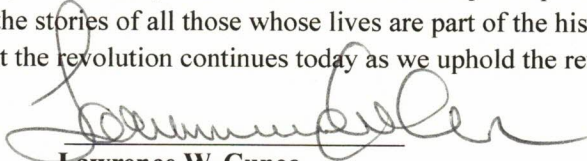 the stories of all those whose lives are part of the his
t the revolution continues today as we uphold the re
Lawrence W.